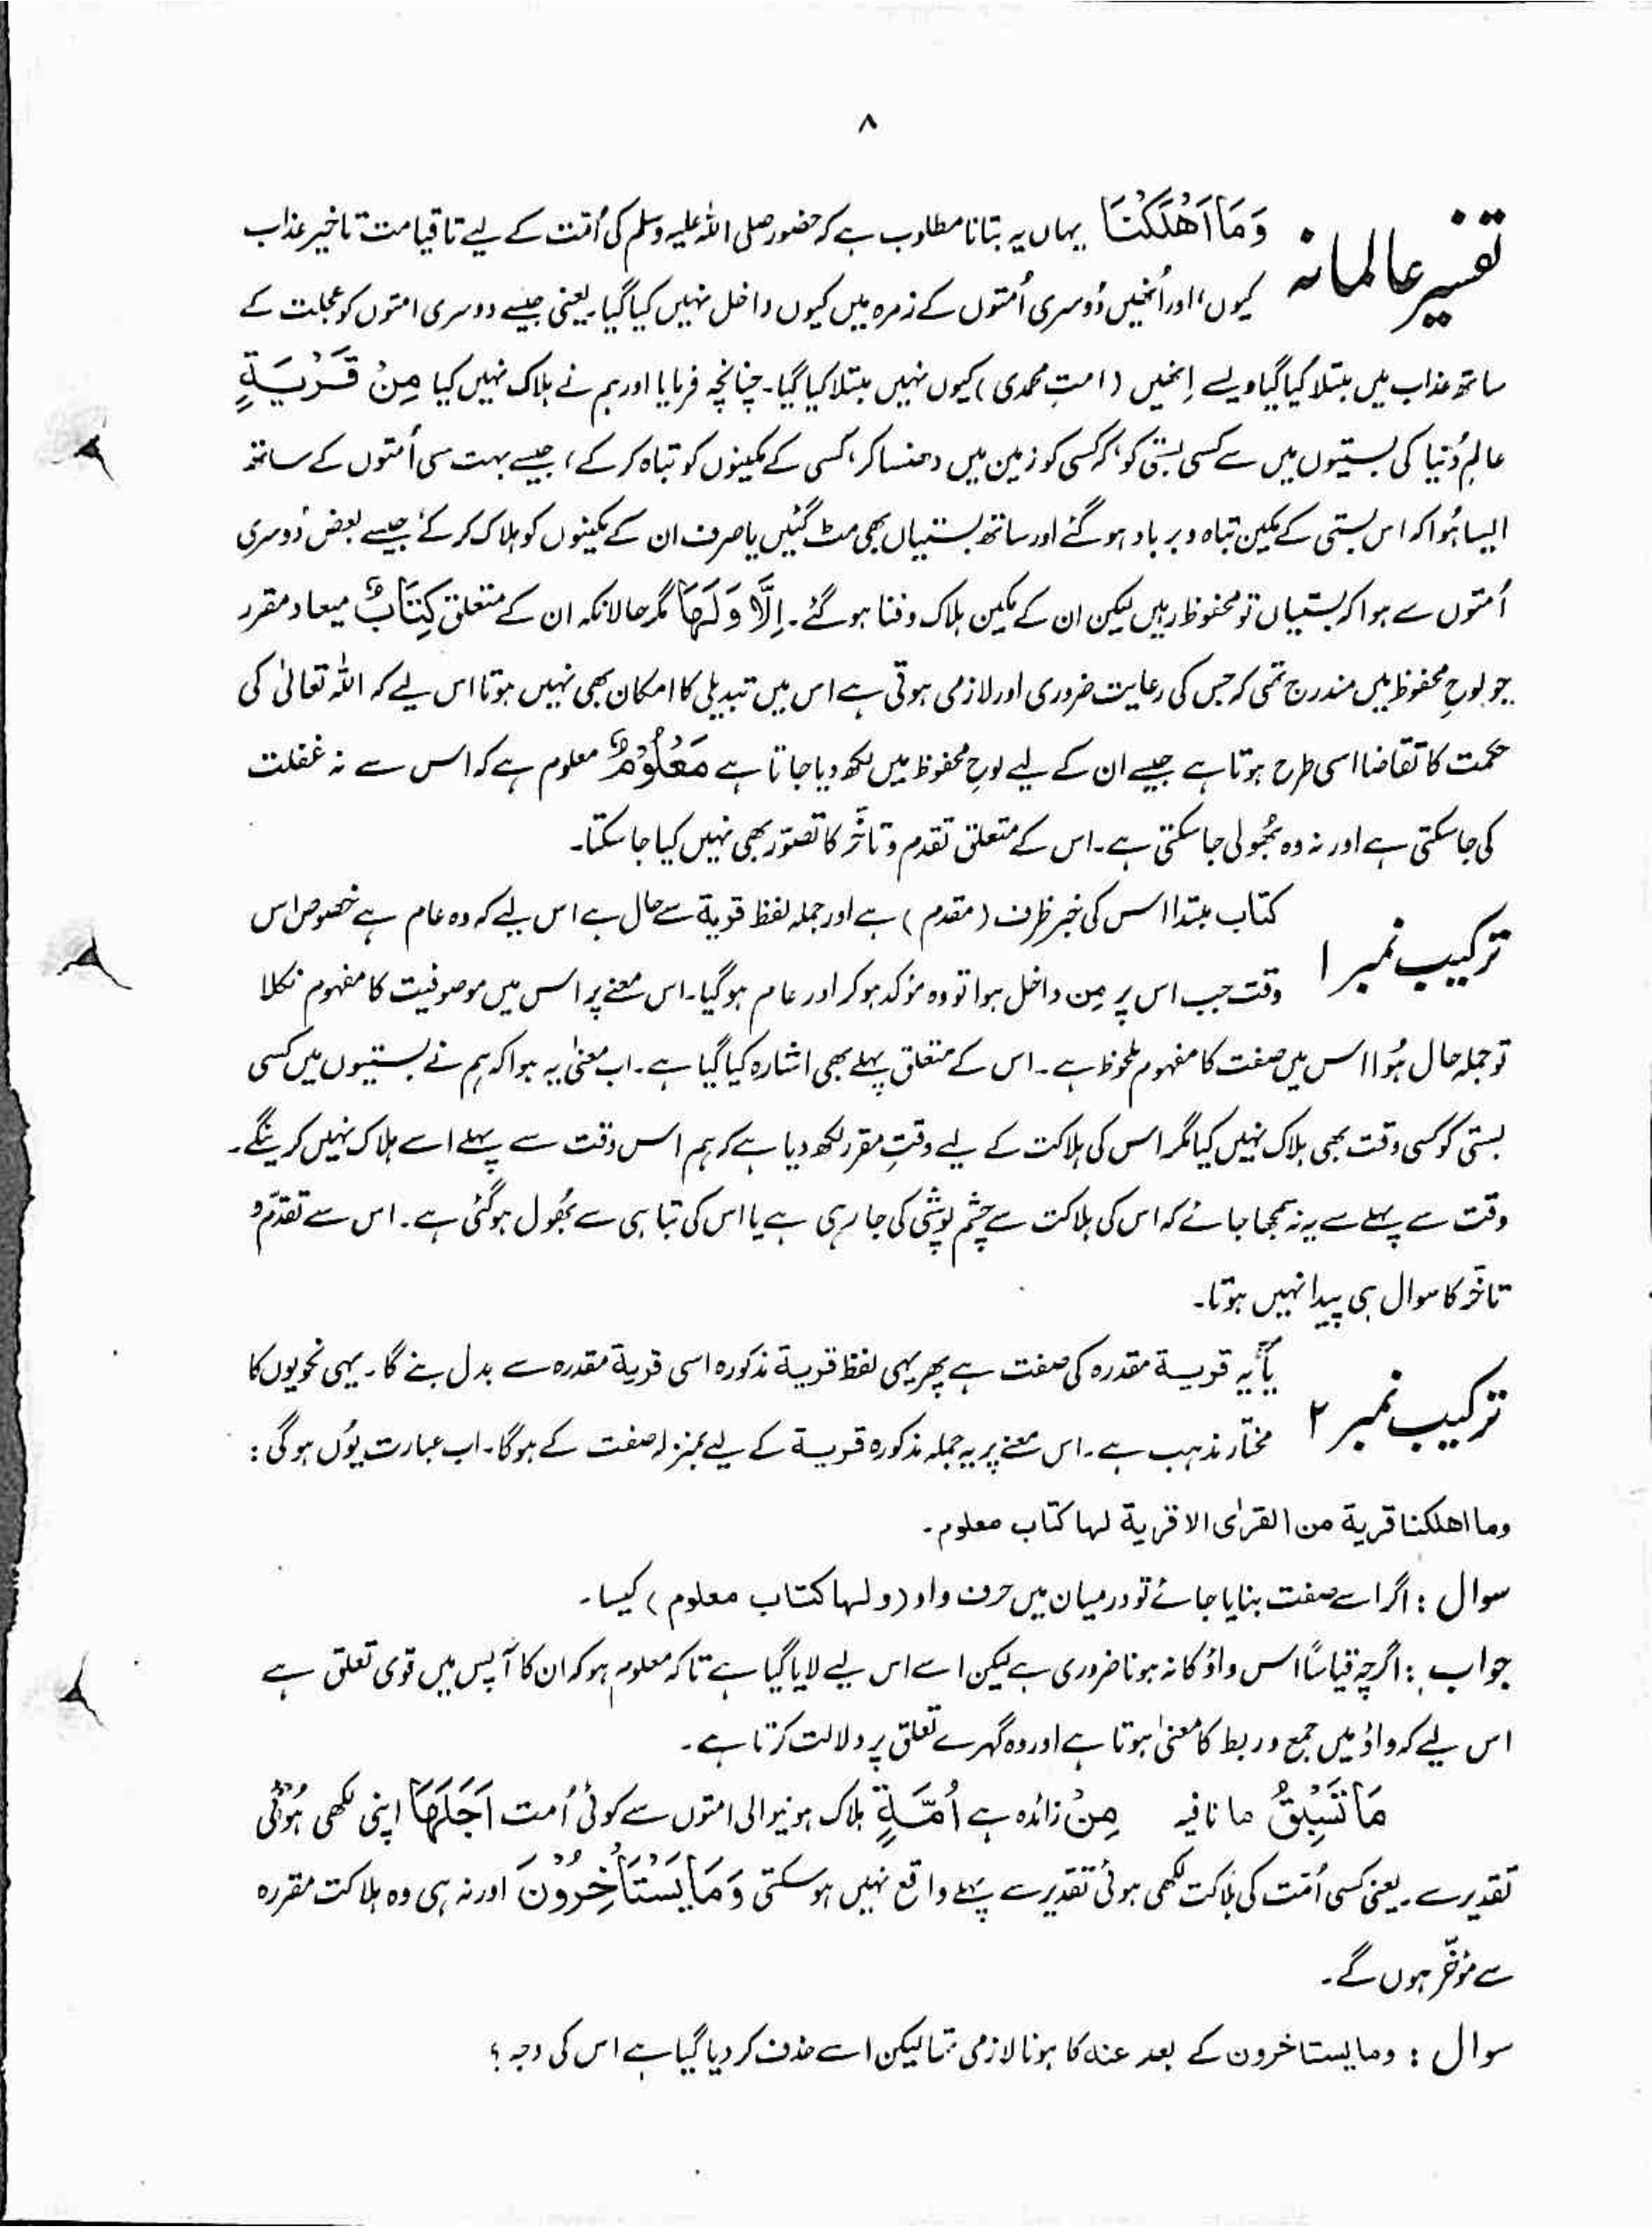 ۸
تفسیر عالمانہ وَمَا اَهْلَكْنَا یہاں یہ بتانا مطلوب ہے کہ حضور صلی اللہ علیہ وسلم کی اُمّت کے لیے تا قیامت تاخیرِ عذاب
کیوں، اور اُنھیں دُوسری اُمتوں کے زمرہ میں کیوں داخل نہیں کیا گیا۔ یعنی جیسے دوسری امتوں کو عجلت کے
ساتھ عذاب میں مبتلا کیا گیا ویسے اِنھیں (امتِ محمدی) کیوں نہیں مبتلا کیا گیا۔ چنانچہ فرمایا اور ہم نے ہلاک نہیں کیا مِنْ قَرْيَةٍ
عالمِ دُنیا کی بستیوں میں سے کسی بستی کو، کہ کسی کو زمین میں دھنسا کر، کسی کے مکینوں کو تباہ کر کے، جیسے بہت سی اُمتوں کے ساتھ
ایسا ہُوا کہ اس بستی کے مکین تباہ و برباد ہو گئے اور ساتھ بستیاں بھی مٹ گئیں یا صرف ان کے مکینوں کو ہلاک کر کے، جیسے بعض دُوسری
اُمتوں سے ہوا کہ بستیاں تو محفوظ رہیں لیکن ان کے مکین ہلاک و فنا ہو گئے۔ اِلَّا وَلَهَا مگر حالانکہ ان کے متعلق كِتَابٌ میعاد مقرر
جو لوحِ محفوظ میں مندرج تھی کہ جس کی رعایت ضروری اور لازمی ہوتی ہے اس میں تبدیلی کا امکان بھی نہیں ہوتا اس لیے کہ اللہ تعالیٰ کی
حکمت کا تقاضا اسی طرح ہوتا ہے جیسے ان کے لیے لوحِ محفوظ میں لکھ دیا جاتا ہے مَعْلُوْمٌ معلوم ہے کہ اس سے نہ غفلت
کی جا سکتی ہے اور نہ وہ بھُولی جا سکتی ہے۔ اس کے متعلق تقدم و تأخّر کا تصوّر بھی نہیں کیا جا سکتا۔
ترکیب نمبر ۱ کتاب مبتدا اس کی خبر ظرف (مقدم) ہے اور جملہ لفظ قریة سے حال ہے اس لیے کہ وہ عام ہے خصوص اس
وقت جب اس پر مِن داخل ہوا تو وہ مؤکد ہو کر اور عام ہو گیا۔ اس معنے پر اس میں موصوفیت کا مفہوم نکلا
تو جملہ حال ہُوا اس میں صفت کا مفہوم ملحوظ ہے۔ اس کے متعلق پہلے بھی اشارہ کیا گیا ہے۔ اب معنیٰ یہ ہوا کہ ہم نے بستیوں میں کسی
بستی کو کسی وقت بھی ہلاک نہیں کیا مگر اس کی ہلاکت کے لیے وقتِ مقرر لکھ دیا ہے کہ ہم اس وقت سے پہلے اسے ہلاک نہیں کرینگے۔
وقت سے پہلے سے یہ نہ سمجھا جائے کہ اس کی ہلاکت سے چشم پوشی کی جا رہی ہے یا اس کی تباہی سے بھُول ہو گئی ہے۔ اس سے تقدّم و
تأخّر کا سوال ہی پیدا نہیں ہوتا۔
ترکیب نمبر ۲ یا یہ قریة مقدرہ کی صفت ہے پھر یہی لفظ قریة مذکورہ اسی قریة مقدرہ سے بدل بنے گا۔ یہی نحویوں کا
مختار مذہب ہے۔ اس معنے پر یہ جملہ مذکورہ قریة کے لیے بمنزلہ صفت کے ہوگا۔ اب عبارت یوں ہوگی:
وما اهلكنا قرية من القرٰى الا قرية لها كتاب معلوم۔
سوال: اگر اسے صفت بنایا جائے تو درمیان میں حرف واو (ولها كتاب معلوم) کیسا۔
جواب: اگرچہ قیاساً اس واؤ کا نہ ہونا ضروری ہے لیکن اسے اس لیے لایا گیا ہے تاکہ معلوم ہو کہ ان کا آپس میں قوی تعلق ہے
اس لیے کہ واؤ میں جمع و ربط کا معنیٰ ہوتا ہے اور وہ گہرے تعلق پر دلالت کرتا ہے۔
مَا تَسْبِقُ ما نافیہ مِنْ زائدہ ہے اُمَّةٍ ہلاک ہونیوالی امتوں سے کوئی اُمت اَجَلَهَا اپنی لکھی ہُوئی
تقدیر سے۔ یعنی کسی اُمّت کی ہلاکت لکھی ہوئی تقدیر سے پہلے واقع نہیں ہو سکتی وَمَا يَسْتَأْخِرُوْنَ اور نہ ہی وہ ہلاکت مقررہ
سے مؤخّر ہوں گے۔
سوال: وما يستاخرون کے بعد عنه کا ہونا لازمی تھا لیکن اسے حذف کر دیا گیا ہے اس کی وجہ؟